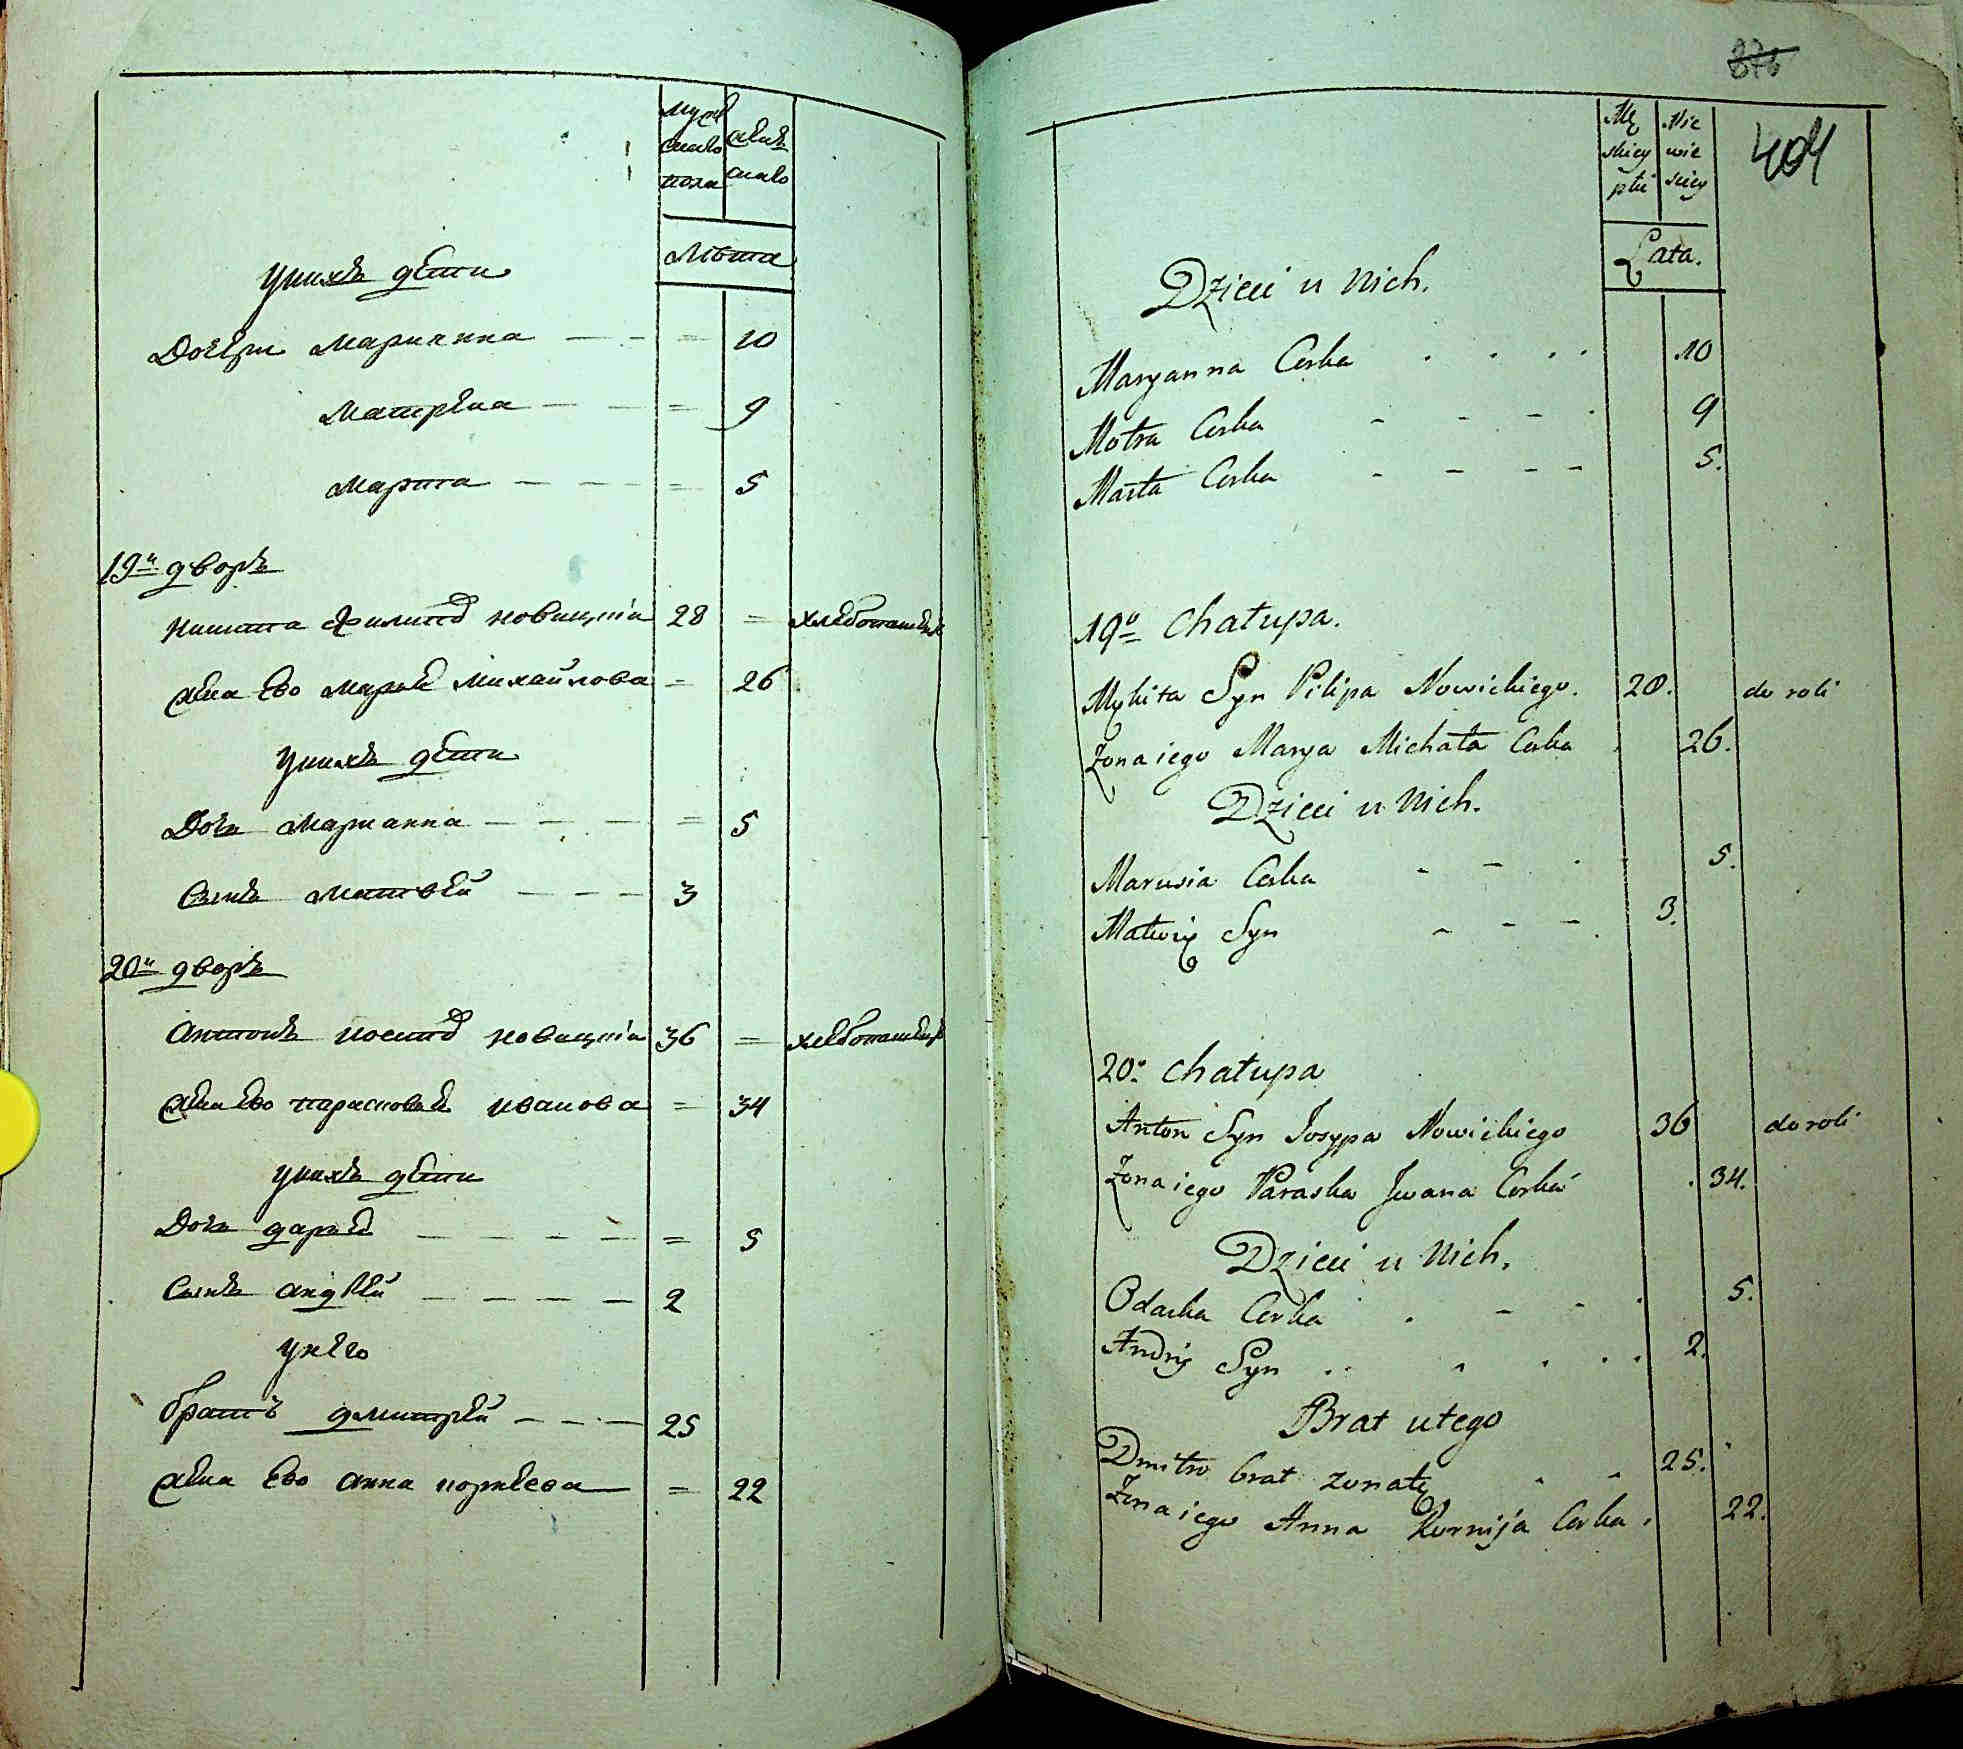 Муже
скаво
пола
женс
скаво
Лѣта
У нихъ дети
Дочери Марианна — — = 10
Матрена — — = 9
Марта — — = 5
19й дворъ
Никита Филипов Новицкiй 28 = хлебопашец
жена ево Марья Михайлова = 26
У нихъ дети
Дочь Марианна — — — = 5
Сынъ Матвей — — — 3
20й дворъ
Антонъ Иосипов Новицкiй 36 = хлебопашец
жена ево Парасковья Иванова = 34
У нихъ дети
Дочь Дарья — — — — = 5
Сынъ Андрей — — — — 2
У него
братъ Дмитрей — — — 25
жена ево Анна Корнеева — = 22
404
Mę
skiey
płci
Nie
wie
sciey
Lata.
Dzieci u Nich.
Maryanna Corka . . . . 10
Motra Corka - - - . 9
Marta Corka - - - - 5.
19a Chałupa.
Mykita Syn Pilipa Nowickiego. 28. do roli
Zona iego Marya Michała Corka . 26.
Dzieci u Nich.
Marusia Corka - - . . 5.
Matwiy Syn - - - . 3.
20a Chałupa
Anton Syn Josypa Nowickiego 36 do roli
Zona iego Paraska Jwana Corka . 34.
Dzieci u Nich.
Odarka Corka . - - . 5.
Andriy Syn . . . . . 2.
Brat u tego
Dmitro brat zonaty . . 25.
Zona iego Anna Kornija Corka . 22.